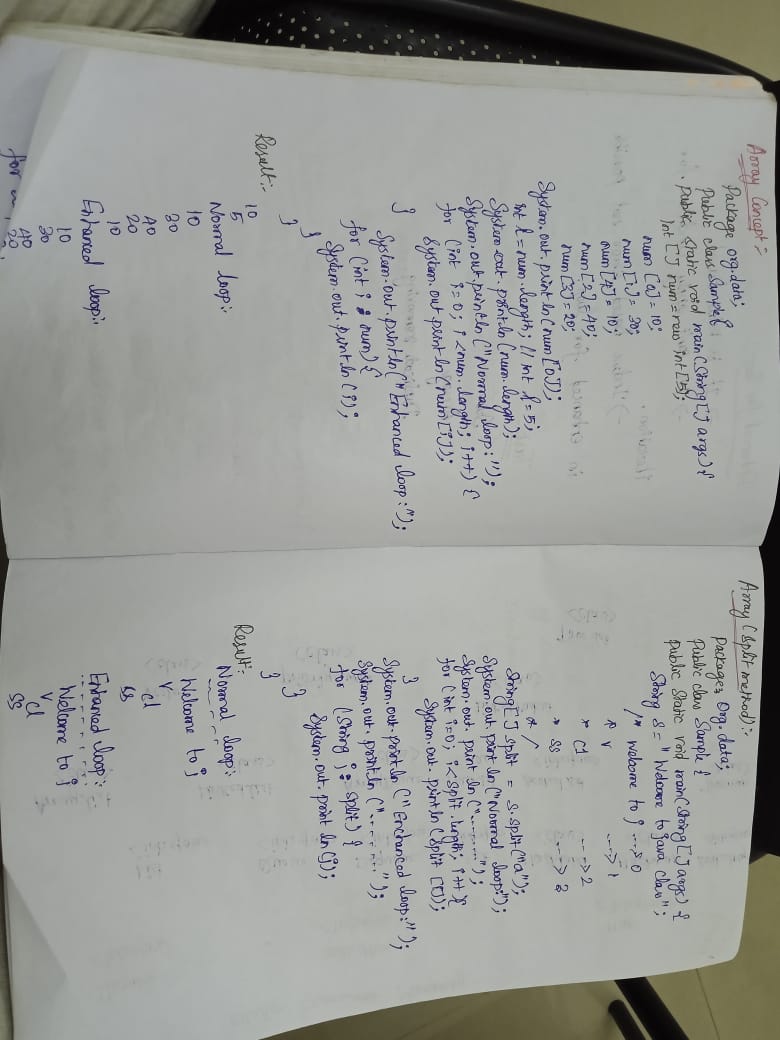 Array Concept:-
Package org.data;
Public class Sample{
Public static void main(String[] args){
Int [] num = new int[5];
num [0] = 10;
num [1] = 30;
num [4] = 10;
num [2] = 40;
num [3] = 20;
System.out.println(num[0]);
int l = num.length; // int l = 5;
System.out.println(num.length);
System.out.println("Normal loop:");
for (int i=0; i<num.length; i++) {
System.out.println(num[i]);
}
System.out.println("Enhanced loop:");
for (int i : num){
System.out.println(i);
}
}
Result:-
10
5
Normal loop:-
10
30
40
20
10
Enhanced loop:-
10
30
40
20
for
Array (Split method):-
Package Org.data;
Public class Sample {
public Static void main(String[] args) {
String S = " Welcome to java class";
/* welcome to j ---> 0
* v ---> 1
* cl ---> 2
* ss ---> 3
* /
String[] split = S.split("a");
System.out.print ln("Normal loop:");
System.out.print ln("--------");
for (int i=0; i<split.length; i++){
System.out.println(split [i]);
}
System.out.println("Enchanced loop:");
System.out.println("-------");
for (String j : split) {
System.out.print ln(j);
}
}
Result:-
Normal loop:-
Welcome to j
v
cl
ss
Enhanced loop:-
Welcome to j
v
cl
ss